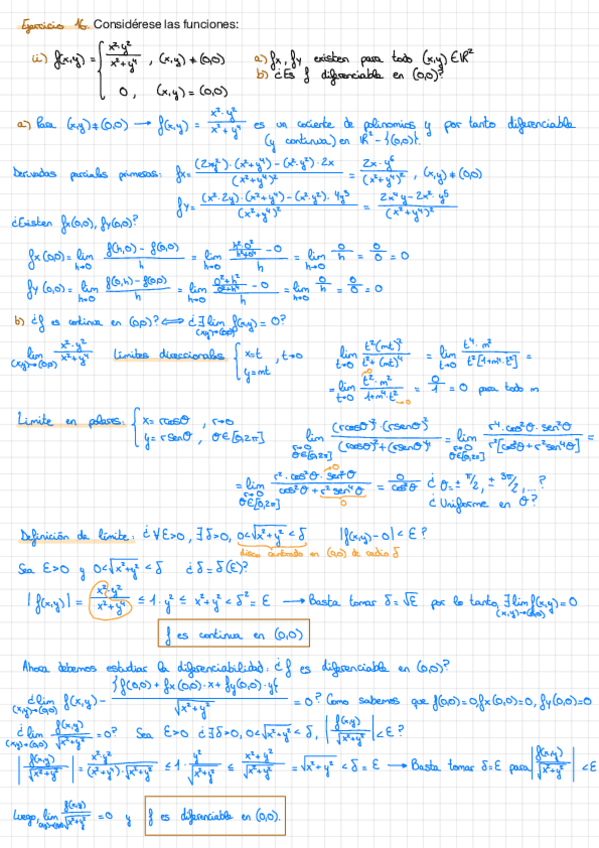 Ejercicio 16. Considérese las funciones:
ii) f(x,y) = { x²·y² / x²+y⁴ , (x,y) ≠ (0,0)
0 , (x,y) = (0,0)
a) fx, fy existen para todo (x,y) ∈ ℝ²
b) ¿Es f diferenciable en (0,0)?
a) Para (x,y) ≠ (0,0) → f(x,y) = x²·y² / x²+y⁴ es un cociente de polinomios y por tanto diferenciable
(y continua) en ℝ² - {(0,0)}.
Derivadas parciales primeras: fx = (2xy²)·(x²+y⁴) - (x²·y²)·2x / (x²+y⁴)² = 2x·y⁶ / (x²+y⁴)² , (x,y) ≠ (0,0)
fy = (x²·2y)·(x²+y⁴) - (x²·y²)·4y³ / (x²+y⁴)² = 2x⁴y - 2x²·y⁵ / (x²+y⁴)²
¿Existen fx(0,0), fy(0,0)?
fx(0,0) = lim h→0 f(h,0) - f(0,0) / h = lim h→0 (h²·0² / h²+0⁴ - 0) / h = lim h→0 0/h = 0/0 = 0
fy(0,0) = lim h→0 f(0,h) - f(0,0) / h = lim h→0 (0²+h² / 0²+h⁴ - 0) / h = lim h→0 0/h = 0/0 = 0
b) ¿f es continua en (0,0)? ⟺ ¿∃ lim (x,y)→(0,0) f(x,y) = 0?
lim (x,y)→(0,0) x²·y² / x²+y⁴ Límites direccionales { x=t , t→0 y=mt lim t→0 t²(mt)² / t²+(mt)⁴ = lim t→0 t⁴·m² / t²[1+m⁴·t²] =
= lim t→0 t²·m² / 1+m⁴·t² = 0/1 = 0 para todo m
→0
→0
Límite en polares: { x = rcosθ , r→0 y = rsenθ , θ∈[0,2π] lim r→0 θ∈[0,2π] (rcosθ)²·(rsenθ)² / (rcosθ)²+(rsenθ)⁴ = lim r→0 θ∈[0,2π] r⁴·cos²θ·sen²θ / r²[cos²θ+r²sen⁴θ] =
= lim r→0 θ∈[0,2π] r²·cos²θ·sen²θ / cos²θ+r²sen⁴θ = 0/cos²θ ¿θ = ±π/2, ±3π/2, ...?
→0
0
¿Uniforme en θ?
Definición de límite: ¿∀ε>0, ∃δ>0, 0<√x²+y² < δ |f(x,y)-0| < ε?
disco centrado en (0,0) de radio δ
Sea ε>0 y 0<√x²+y² < δ ¿δ = δ(ε)?
|f(x,y)| = x²·y² / x²+y⁴ ≤ 1·y² ≤ x²+y² < δ² = ε → Basta tomar δ=√ε por lo tanto, ∃ lim (x,y)→(0,0) f(x,y) = 0
f es continua en (0,0)
Ahora debemos estudiar la diferenciabilidad: ¿f es diferenciable en (0,0)?
¿lim (x,y)→(0,0) f(x,y) - {f(0,0) + fx(0,0)·x + fy(0,0)·y} / √x²+y² = 0? Como sabemos que f(0,0)=0, fx(0,0)=0, fy(0,0)=0
¿lim (x,y)→(0,0) f(x,y) / √x²+y² = 0? Sea ε>0 ¿∃δ>0, 0<√x²+y² < δ, |f(x,y) / √x²+y²| < ε?
|f(x,y) / √x²+y²| = x²·y² / (x²+y⁴)·√x²+y² ≤ 1· y² / √x²+y² ≤ x²+y² / √x²+y² = √x²+y² < δ = ε → Basta tomar δ=ε para |f(x,y) / √x²+y²| < ε
Luego, lim (x,y)→(0,0) f(x,y) / √x²+y² = 0 y f es diferenciable en (0,0).